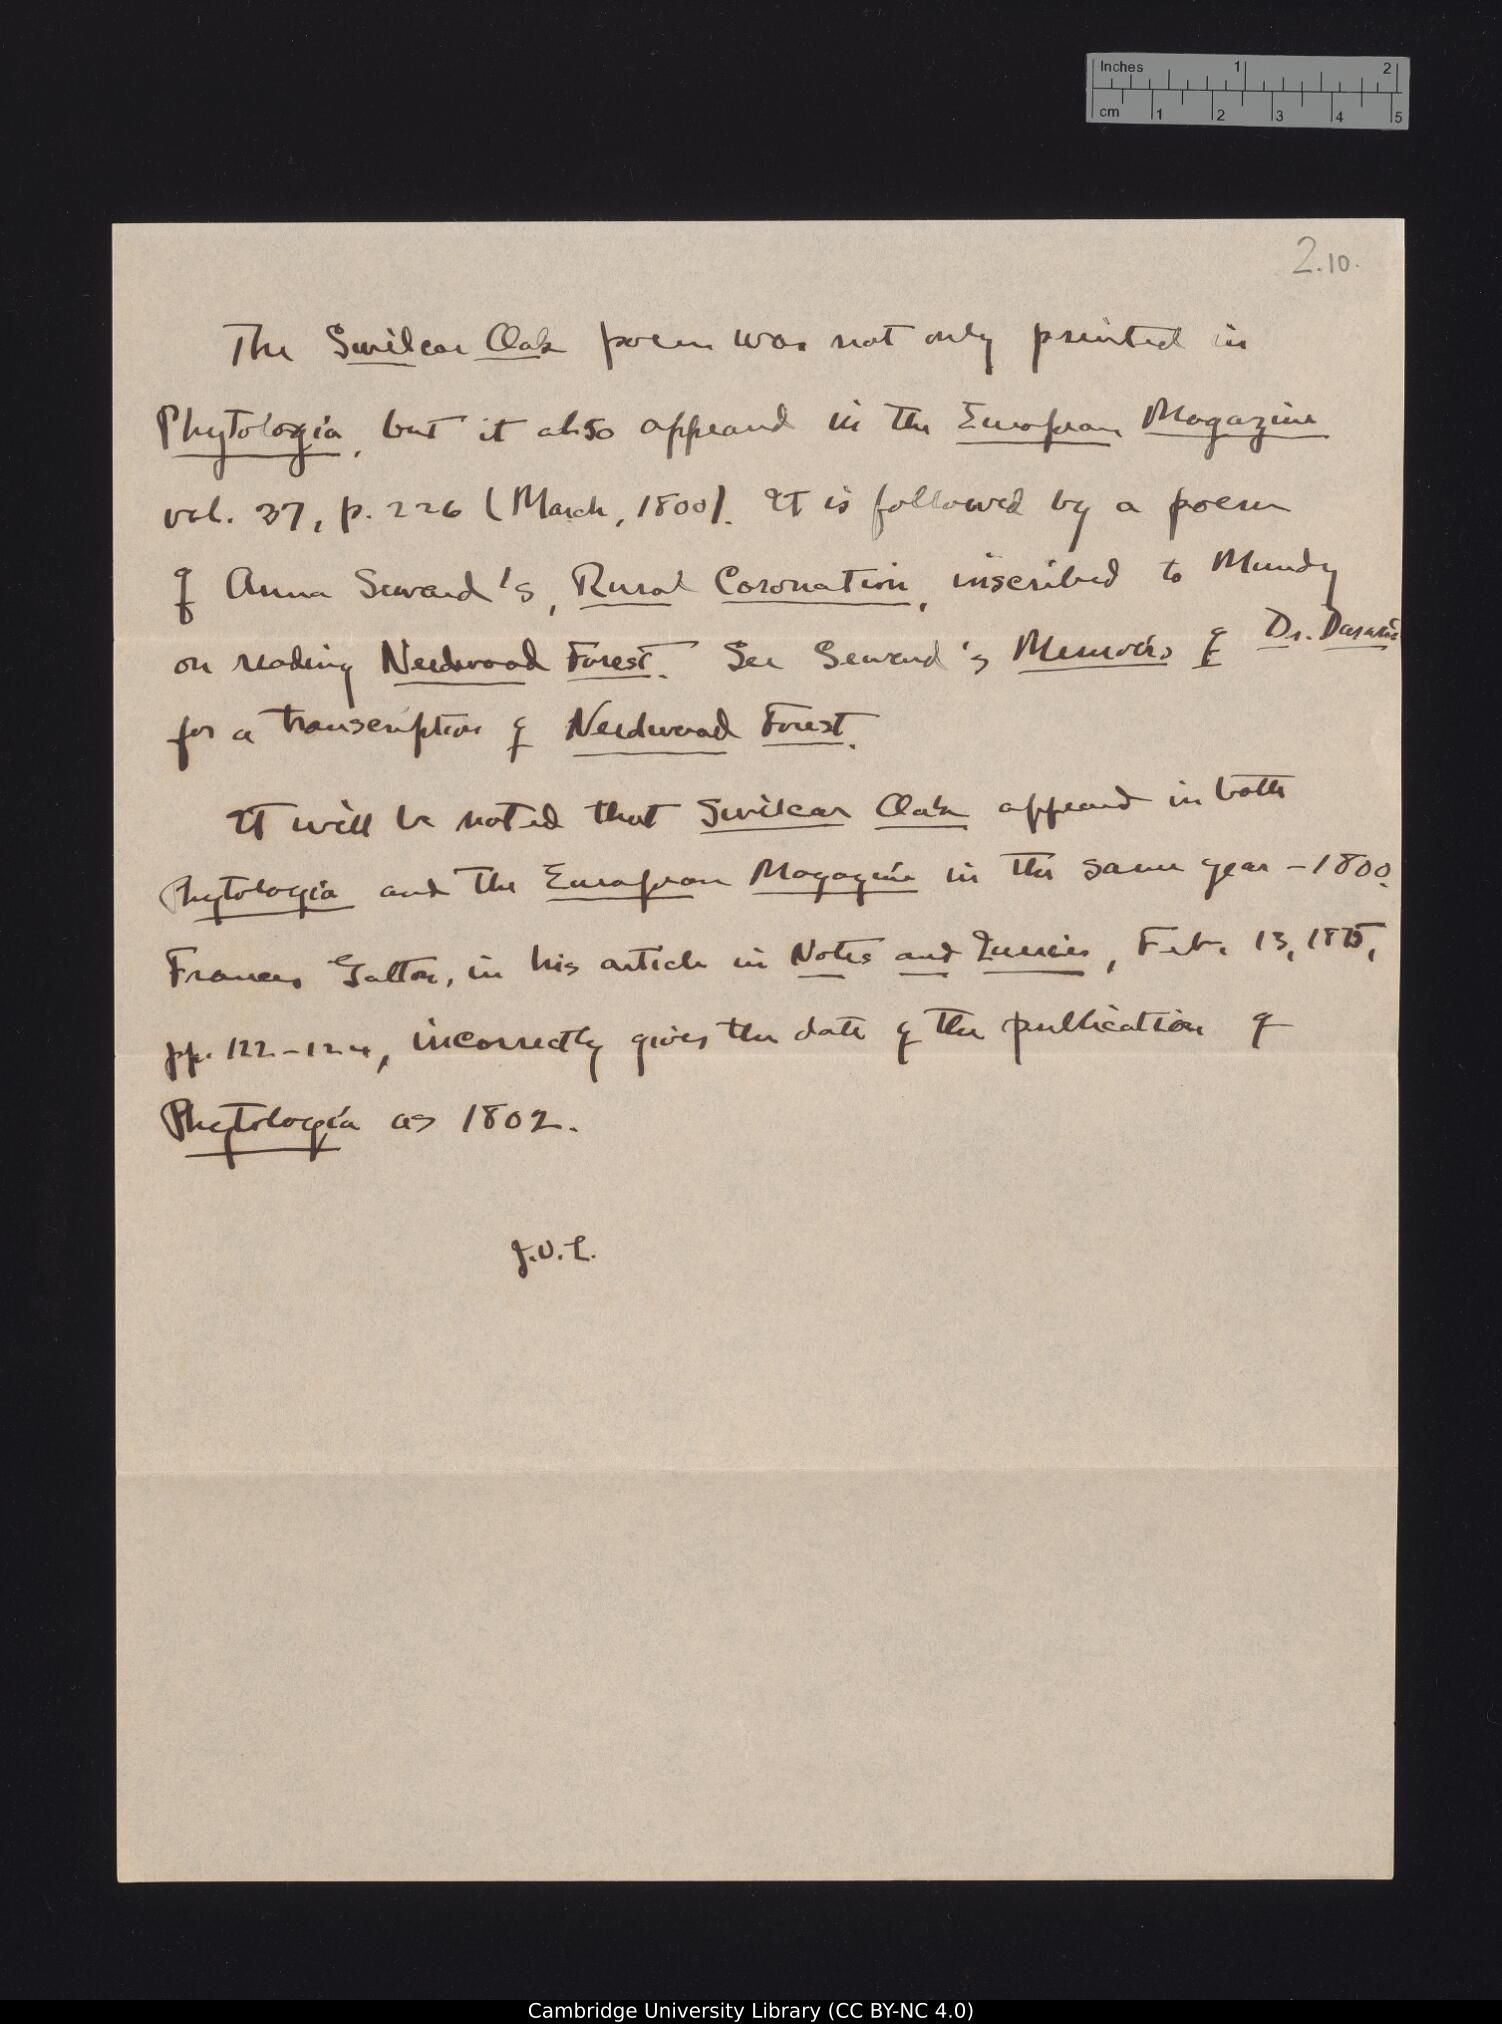 Inches 1 2
cm 1 2 3 4 5
2.10.
The Swilcar Oak poem was not only printed in
Phytologia, but it also appeared in the European Magazine
vol. 37, p. 226 (March, 1800). It is followed by a poem
of Anna Seward's, Rural Coronation, inscribed to Mundy
on reading Needwood Forest. See Seward's Memoirs of Dr. Darwin
for a transcription of Needwood Forest.
It will be noted that Swilcar Oak appeared in both
Phytologia and the European Magazine in the same year - 1800.
Francis Galton, in his article in Notes and Queries, Feb. 13, 1875,
pp. 122-124, incorrectly gives the date of the publication of
Phytologia as 1802.
J.V.L.
Cambridge University Library (CC BY-NC 4.0)